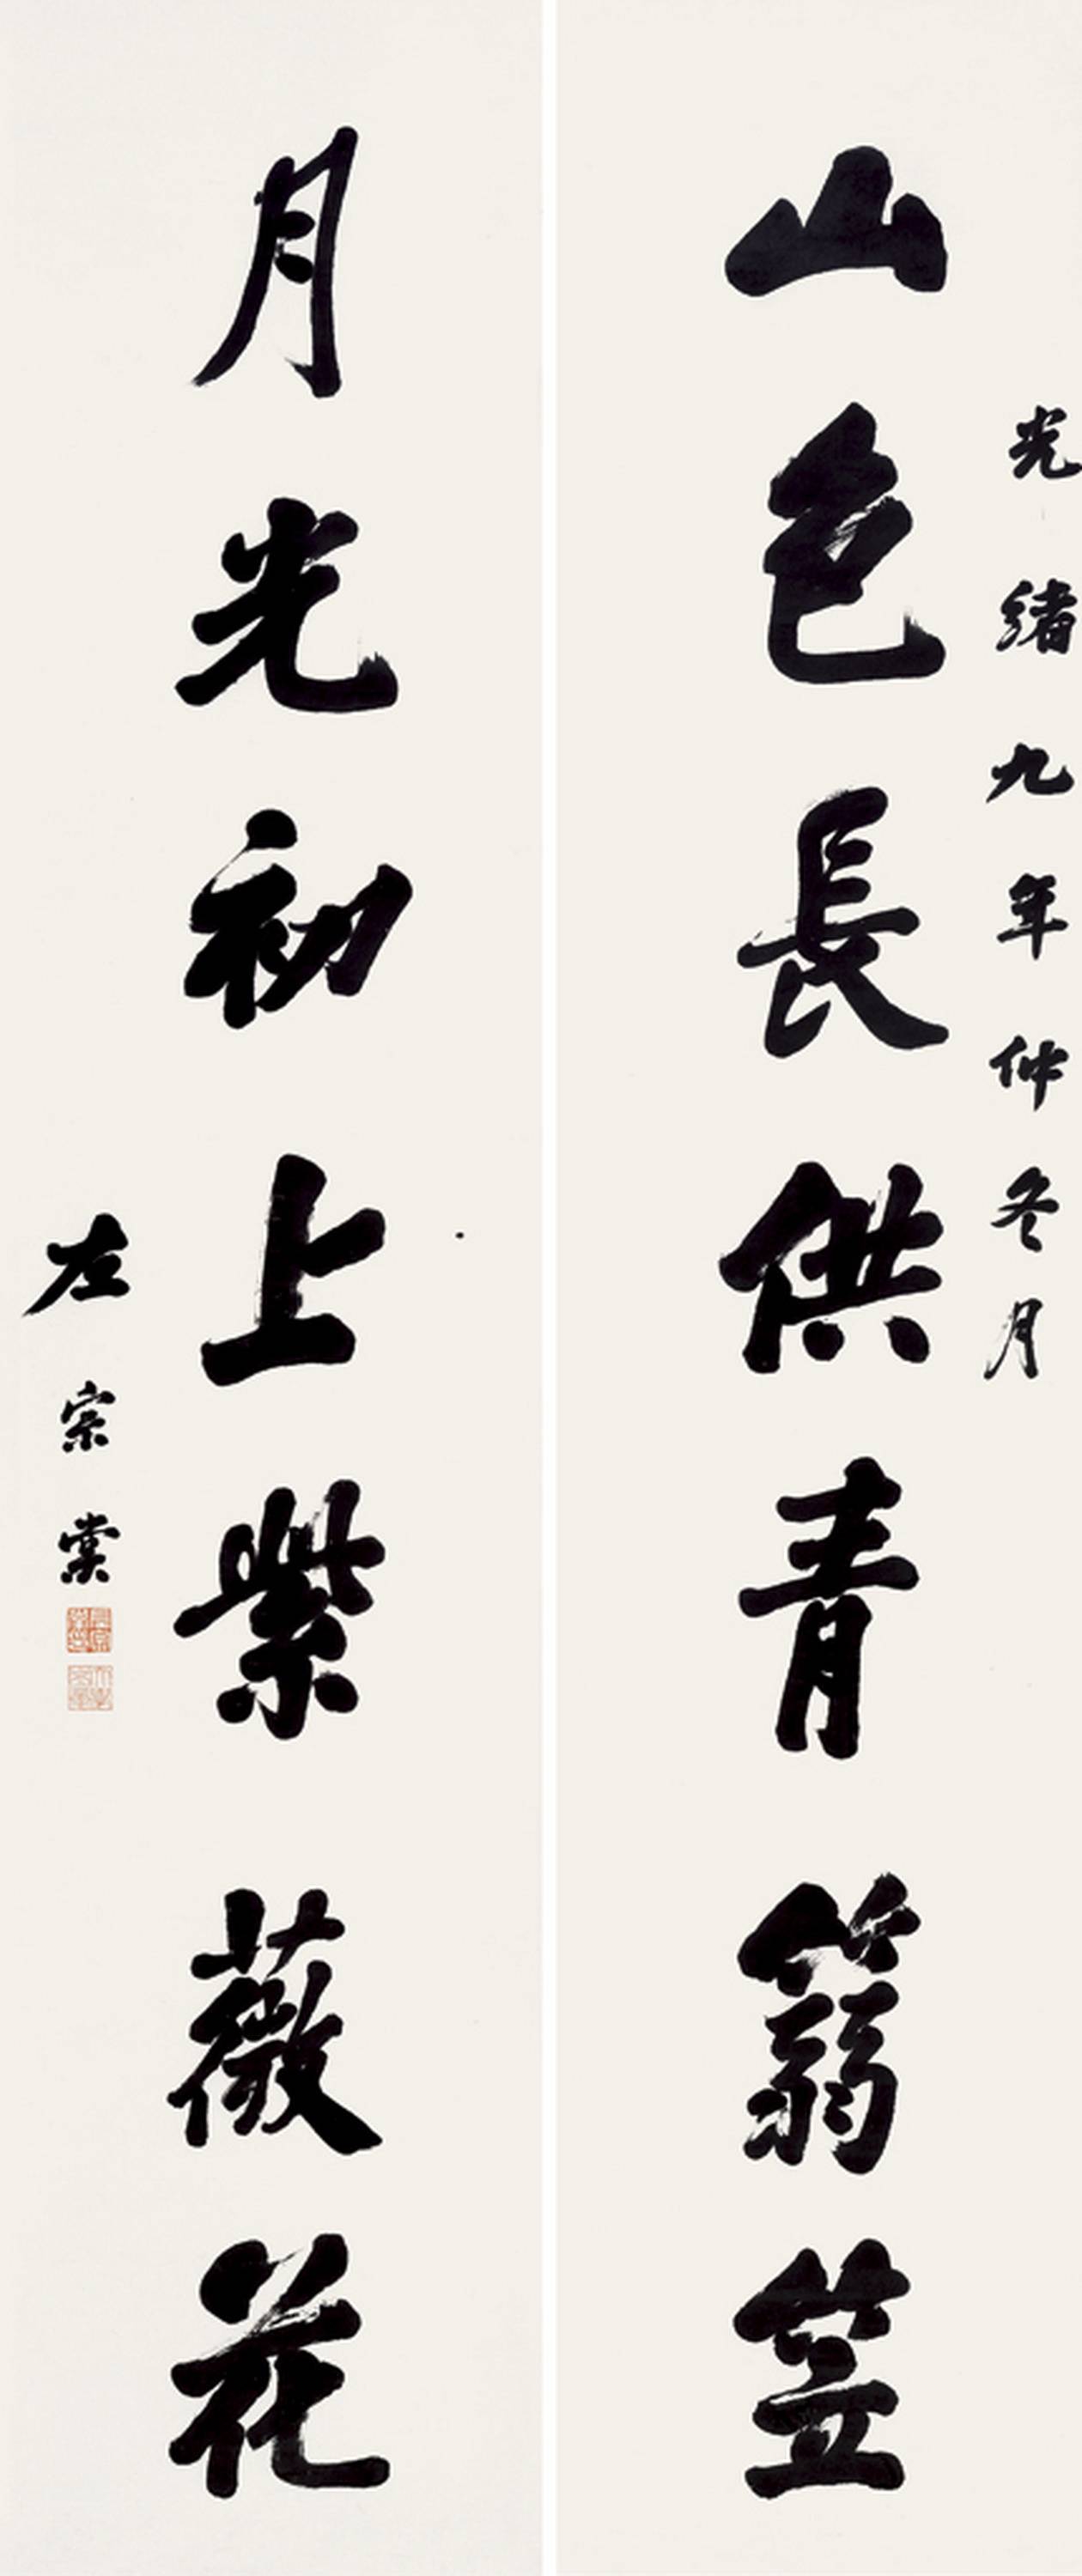 光緒九年仲冬月
山色長供青篛笠
月光初上紫薇花
左宗棠